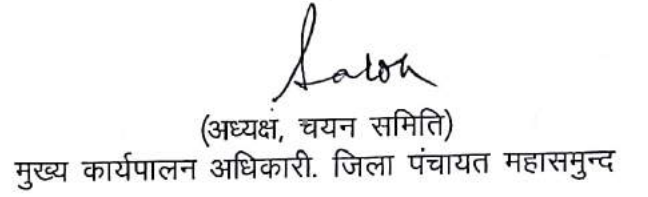 (अध्यक्ष, चयन समिति)
मुख्य कार्यपालन अधिकारी. जिला पंचायत महासमुन्द